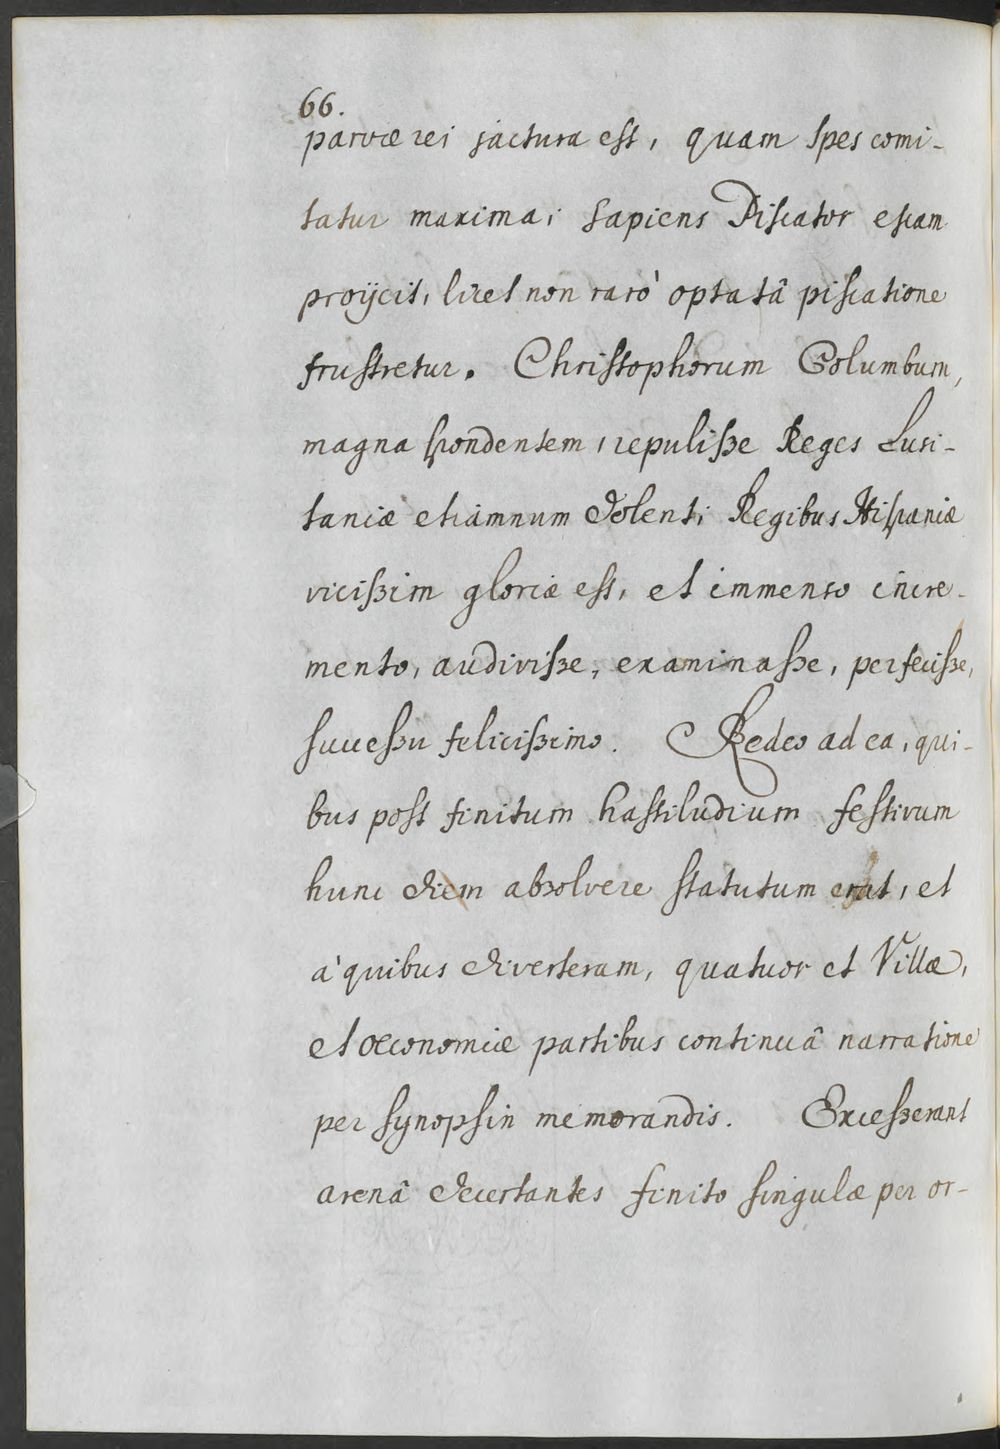 66.
parvæ rei jactura est, quam spes comi-
tatur maxima; sapiens Piscator escam
proijcit, licet non rarò optatâ piscatione
frustretur. Christophorum Columbum,
magna spondentem, repulisse Reges Lusi-
taniæ etiamnum dolent; Regibus Hispaniæ
vicissim gloriæ est, et immenso incre-
mento, audivisse, examinasse, perfecisse,
successu felicissimo. Redeo ad ea, qui-
bus post finitum hastiludium festivum
hunc diem absolvere statutum erat, et
à quibus diverteram, quatuor et Villæ,
et œconomiæ partibus continuâ narratione
per synopsin memorandis. Excesserant
arenâ decertantes finito singulæ per or-